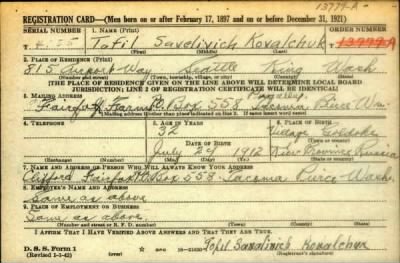 13779-A-
REGISTRATION CARD—(Men born on or after February 17, 1897 and on or before December 31, 1921)
SERIAL NUMBER 1. NAME (Print) ORDER NUMBER
Tofil Savolinich Kovalchuk 13779-A
(First) (Middle) (Last)
2. PLACE OF RESIDENCE (Print)
815 Airport Way Seattle King Wash
(Number and street) (Town, township, village, or city) (County) (State)
[THE PLACE OF RESIDENCE GIVEN ON THE LINE ABOVE WILL DETERMINE LOCAL BOARD
JURISDICTION; LINE 2 OF REGISTRATION CERTIFICATE WILL BE IDENTICAL]
3. MAILING ADDRESS
Box 558 Tacoma Pierce Wn.
[Mailing address if other than place indicated on line 2. If same insert word same]
4. TELEPHONE 5. AGE IN YEARS 6. PLACE OF BIRTH
32 Village
DATE OF BIRTH (Town or county)
July 29 1912 Kiev Province Russia
(Exchange) (Number) (Mo.) (Day) (Yr.) (State or country)
7. NAME AND ADDRESS OF PERSON WHO WILL ALWAYS KNOW YOUR ADDRESS
Clifford Fairfax Box 558 Tacoma Pierce Wash.
8. EMPLOYER'S NAME AND ADDRESS
same as above
9. PLACE OF EMPLOYMENT OR BUSINESS
Same as above.
(Number and street or R. F. D. number) (Town) (County) (State)
I AFFIRM THAT I HAVE VERIFIED ABOVE ANSWERS AND THAT THEY ARE TRUE.
D. S. S. Form 1
(Revised 1-1-42) Tofil Savolinich Kovalchuk